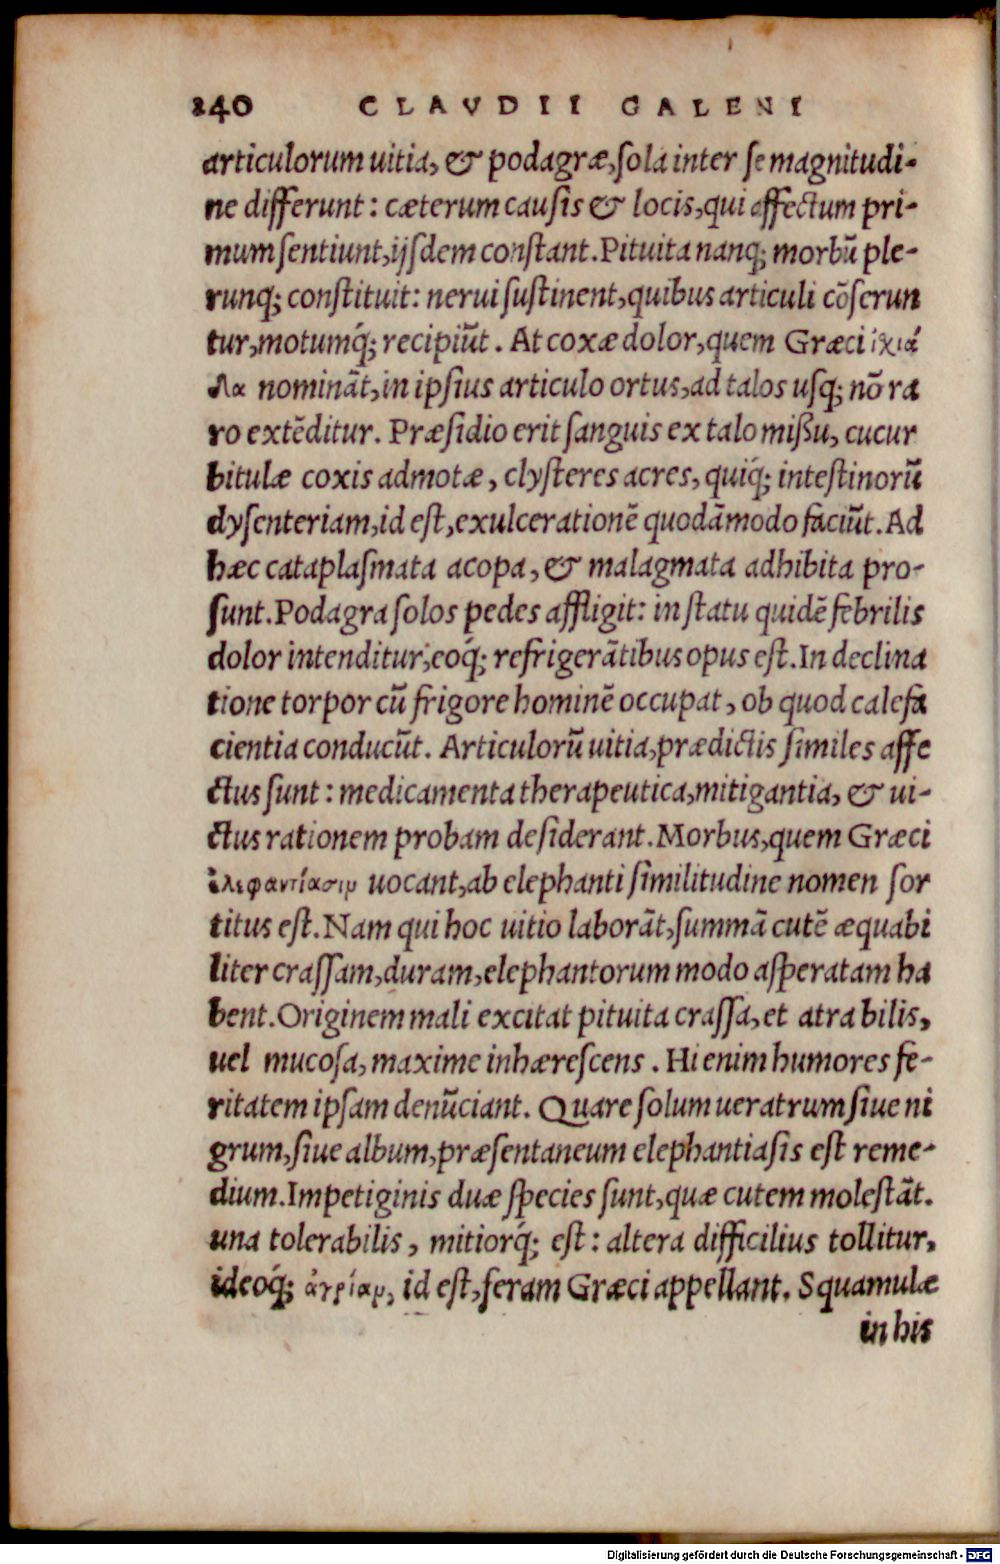 240 CLAVDII GALENI
articulorum uitia, & podagræ, ſola inter ſe magnitudi-
ne differunt: cæterum cauſis & locis, qui affectum pri-
mum ſentiunt, ijſdem conſtant. Pituita nanq; morbū ple-
runq; conſtituit: nerui ſuſtinent, quibus articuli cōſerun
tur, motumq́; recipiūt. At coxæ dolor, quem Græci ἰχιά
δα nomināt, in ipſius articulo ortus, ad talos uſq; nō ra
ro extēditur. Præſidio erit ſanguis ex talo miſſu, cucur
bitulæ coxis admotæ, clyſteres acres, quiq́; inteſtinorū
dyſenteriam, id eſt, exulcerationē quodāmodo faciūt. Ad
hæc cataplaſmata acopa, & malagmata adhibita pro-
ſunt. Podagra ſolos pedes affligit: in ſtatu quidē febrilis
dolor intenditur, eoq́; refrigerātibus opus eſt. In declina
tione torpor cū frigore hominē occupat, ob quod calefa
cientia conducūt. Articulorū uitia, prædictis ſimiles affe
ctus ſunt: medicamenta therapeutica, mitigantia, & ui-
ctus rationem probam deſiderant. Morbus, quem Græci
ἐλεφαντίασιν uocant, ab elephanti ſimilitudine nomen ſor
titus eſt. Nam qui hoc uitio laborāt, ſummā cutē æquabi
liter craſſam, duram, elephantorum modo aſperatam ha
bent. Originem mali excitat pituita craſſa, et atra bilis,
uel mucoſa, maxime inhæreſcens. Hi enim humores fe-
ritatem ipſam denūciant. Quare ſolum ueratrum ſiue ni
grum, ſiue album, præſentaneum elephantiaſis eſt reme-
dium. Impetiginis duæ ſpecies ſunt, quæ cutem moleſtāt.
una tolerabilis, mitiorq́; eſt: altera difficilius tollitur,
ideoq́; ἀγρίαν, id eſt, feram Græci appellant. Squamulæ
in his
Digitalisierung gefördert durch die Deutsche Forschungsgemeinschaft - DFG